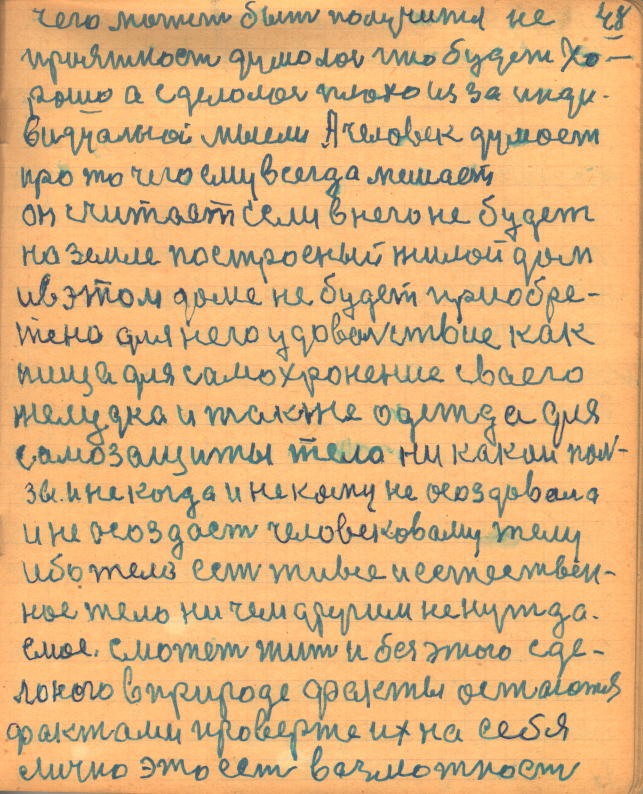 чего может быт получится не 48
приятност думолои что будет хо-
рошо а сделолои плохо из за инди-
видуальной мысли А человек думоет
про то чего ему всегда мешает
он считает если в него не будет
на земле построеный жилой дом
и в этом доме не будет приобре-
тено для него удоволствие как
пища для самохронение сваего
желудка и также одежда для
самозащиты тела ни какой пол-
зы. и некогда и некому не осоздовала
и не осоздаст человековаму телу
ибо тело ест живое и естествен-
ное тело ни чем другим ненужда.
емое. сможет жит и без этого сде-
лоного в природе факты остаются
фактами проверте их на себя
лично это ест возможност